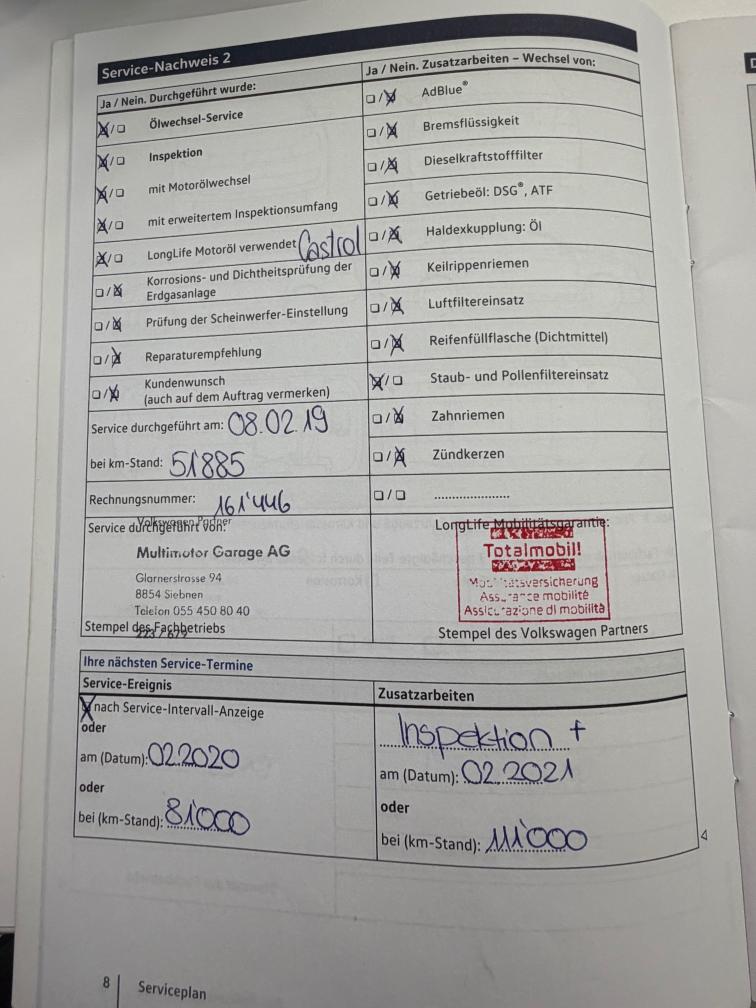 Service-Nachweis 2
Ja / Nein. Durchgeführt wurde:
Ölwechsel-Service
Inspektion
mit Motorölwechsel
mit erweitertem Inspektionsumfang
LongLife Motoröl verwendet Castrol
Korrosions- und Dichtheitsprüfung der
Erdgasanlage
Prüfung der Scheinwerfer-Einstellung
Reparaturempfehlung
Kundenwunsch
(auch auf dem Auftrag vermerken)
Service durchgeführt am: 08.02.19
bei km-Stand: 51'885
Rechnungsnummer: 161'446
Ja / Nein. Zusatzarbeiten – Wechsel von:
AdBlue®
Bremsflüssigkeit
Dieselkraftstofffilter
Getriebeöl: DSG®, ATF
Haldexkupplung: Öl
Keilrippenriemen
Luftfiltereinsatz
Reifenfüllflasche (Dichtmittel)
Staub- und Pollenfiltereinsatz
Zahnriemen
Zündkerzen
....................
Service durchgeführt von:
Volkswagen Partner
Multimotor Garage AG
Glarnerstrasse 94
8854 Siebnen
Telefon 055 450 80 40
Stempel des Fachbetriebs
LongLife Mobilitätsgarantie:
Totalmobil!
Mobilitätsversicherung
Assurance mobilité
Assicurazione di mobilità
Stempel des Volkswagen Partners
Ihre nächsten Service-Termine
Service-Ereignis
nach Service-Intervall-Anzeige
oder
am (Datum): 02.2020
oder
bei (km-Stand): 81'000
Zusatzarbeiten
Inspektion +
am (Datum): 02.2021
oder
bei (km-Stand): 111'000
8 Serviceplan